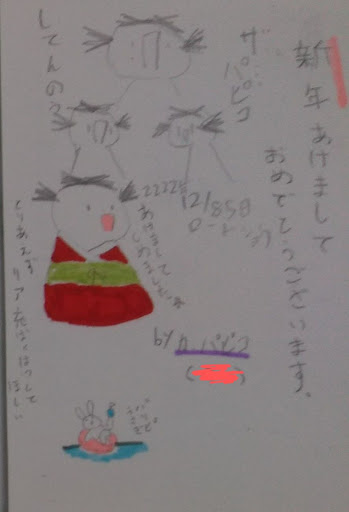 新年あけまして
おめでとうございます。
ザ・パピコ
してんのう
22222年
12/85日
ロードショウ
あけまして
しめまして
by カ パピコ
とりあえず
リア充ばくはつして
ほしい